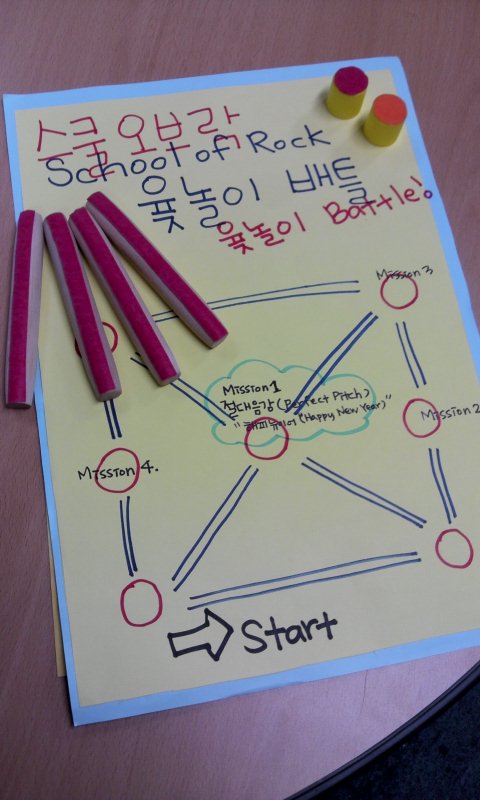 스쿨 오브 락
School of Rock
윷놀이 배틀
윷놀이 Battle!
Mission 3
Mission 1
절대음감 (Perfect Pitch)
"해피뉴이어 (Happy New Year)"
Mission 2
Mission 4.
Start